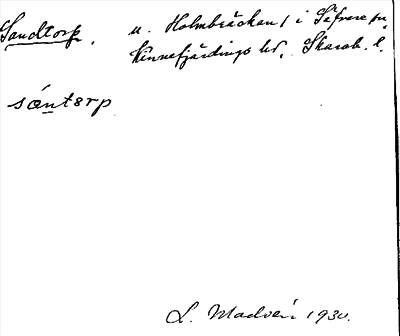 Sandtorp. u. Holmbäcken, i Säfvare sn,
Kinnefjärdings hd, Skarab. l.
sántɛrp
L. Madvén 1930.